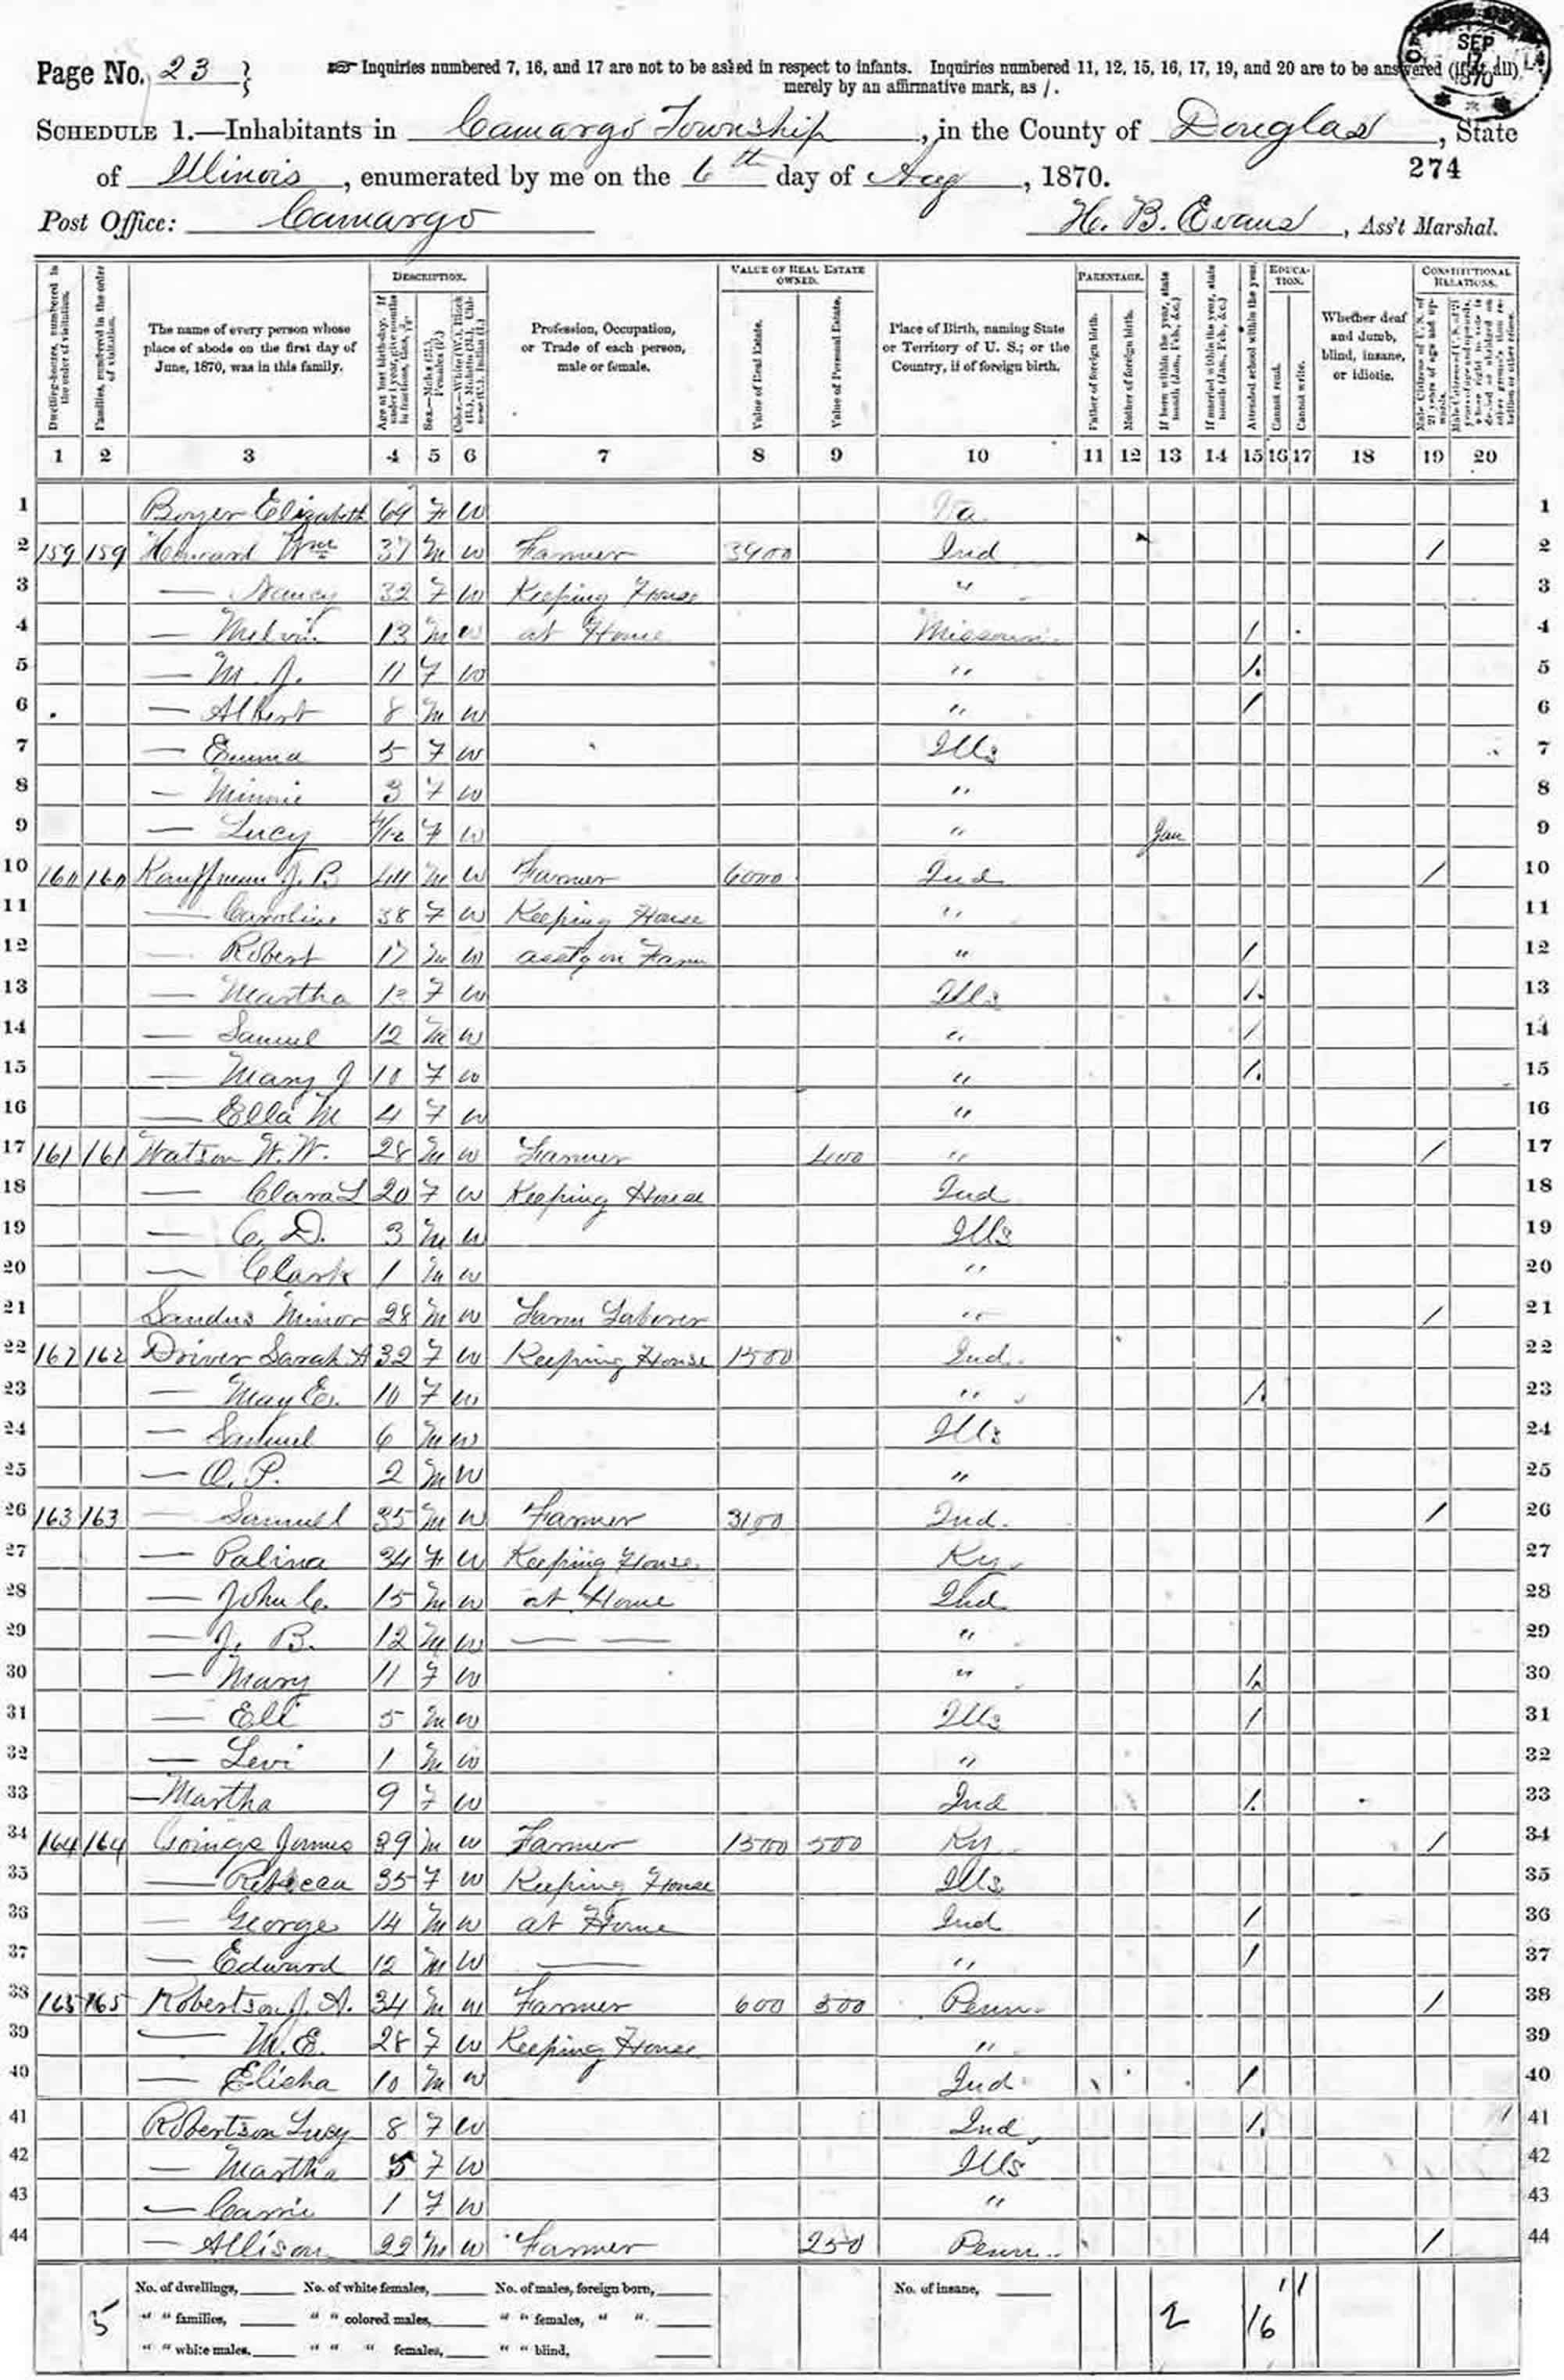 Page No. 23
Inquiries numbered 7, 16, and 17 are not to be asked in respect to infants. Inquiries numbered 11, 12, 15, 16, 17, 19, and 20 are to be answered (if at all)
merely by an affirmative mark, as /.
SEP 17 1870
SCHEDULE 1.—Inhabitants in Camargo Township, in the County of Douglas, State
of Illinois, enumerated by me on the 6th day of Aug, 1870.
274
Post Office: Camargo
H. B. Evans, Ass't Marshal.
DESCRIPTION. VALUE OF REAL ESTATE OWNED. PARENTAGE. EDUCATION. CONSTITUTIONAL RELATIONS.
Dwelling-houses, numbered in the order of visitation.
Families, numbered in the order of visitation.
The name of every person whose place of abode on the first day of June, 1870, was in this family.
Age at last birth-day. If under 1 year, give months in fractions, thus,
Sex.—Males (M.), Females (F.)
Color.—White (W.), Black (B.), Mulatto (M.), Chinese (C.), Indian (I.)
Profession, Occupation, or Trade of each person, male or female.
Value of Real Estate.
Value of Personal Estate.
Place of Birth, naming State or Territory of U. S.; or the Country, if of foreign birth.
Father of foreign birth.
Mother of foreign birth.
If born within the year, state month (Jan., Feb., &c.)
If married within the year, state month (Jan., Feb., &c.)
Attended school within the year.
Cannot read.
Cannot write.
Whether deaf and dumb, blind, insane, or idiotic.
Male Citizens of U. S. of 21 years of age and upwards.
1 2 3 4 5 6 7 8 9 10 11 12 13 14 15 16 17 18 19 20
1 Boyer Elizabeth 69 F W Va. 1
2 159 159 Wm 37 M W Farmer 3900 Ind / 2
3 — Nancy 32 F W Keeping House " 3
4 — Melvin 13 M W at Home Missouri / 4
5 — M. J. 11 F W " / 5
6 — Albert 8 M W " / 6
7 — Emma 5 F W Ills 7
8 — Minnie 3 F W " 8
9 — Lucy /12 F W " Jan 9
10 160 160 Kauffman J. B 44 M W Farmer 6000 Ind / 10
11 — Caroline 38 F W Keeping House " 11
12 — Robert 17 M W on Farm " / 12
13 — Martha F W Ills / 13
14 — Samuel 12 M W " / 14
15 — Mary J 10 F W " / 15
16 — Ella M 4 F W " 16
17 161 161 Watson W. W. 28 M W Farmer 400 " / 17
18 — Clara L 20 F W Keeping House Ind 18
19 — C. D. 3 M W Ills 19
20 — Clark 1 M W " 20
21 Sandus Minor 28 M W Farm Laborer " / 21
22 162 162 Driver Sarah A 32 F W Keeping House 1500 Ind. 22
23 — May E. 10 F W " / 23
24 — Samuel 6 M W Ills 24
25 — O. P. 2 M W " 25
26 163 163 — Samuel 35 M W Farmer 3100 Ind. / 26
27 — Palina 34 F W Keeping House Ky 27
28 — John C. 15 M W at Home Ind 28
29 — J. B. 12 M W — — " 29
30 — Mary 11 F W " / 30
31 — Eli 5 M W Ills / 31
32 — Levi 1 M W " 32
33 — Martha 9 F W Ind / 33
34 164 164 Goings James 39 M W Farmer 1500 500 Ky / 34
35 — Rebecca 35 F W Keeping House Ills 35
36 — George 14 M W at Home Ind / 36
37 — Edward 12 M W — " / 37
38 165 165 Robertson J. A. 34 M W Farmer 600 300 Penn / 38
39 — M. E. 28 F W Keeping House " 39
40 — Elisha 10 M W Ind / 40
41 Robertson Lucy 8 F W Ind / 41
42 — Martha 5 F W Ills 42
43 — Carrie 1 F W " 43
44 — Allison 22 M W Farmer 250 Penn / 44
No. of dwellings, No. of white females, No. of males, foreign born, No. of insane,
5 " " families, " " colored males, " " females, " " 2 16
" " white males, " " " females, " " blind,